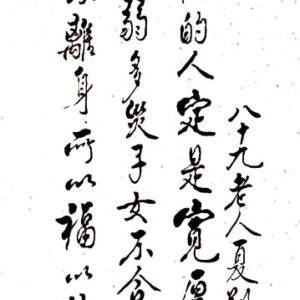 的人定是宽厚
弱多灾子女不合
离身所以福以
八十九老人夏